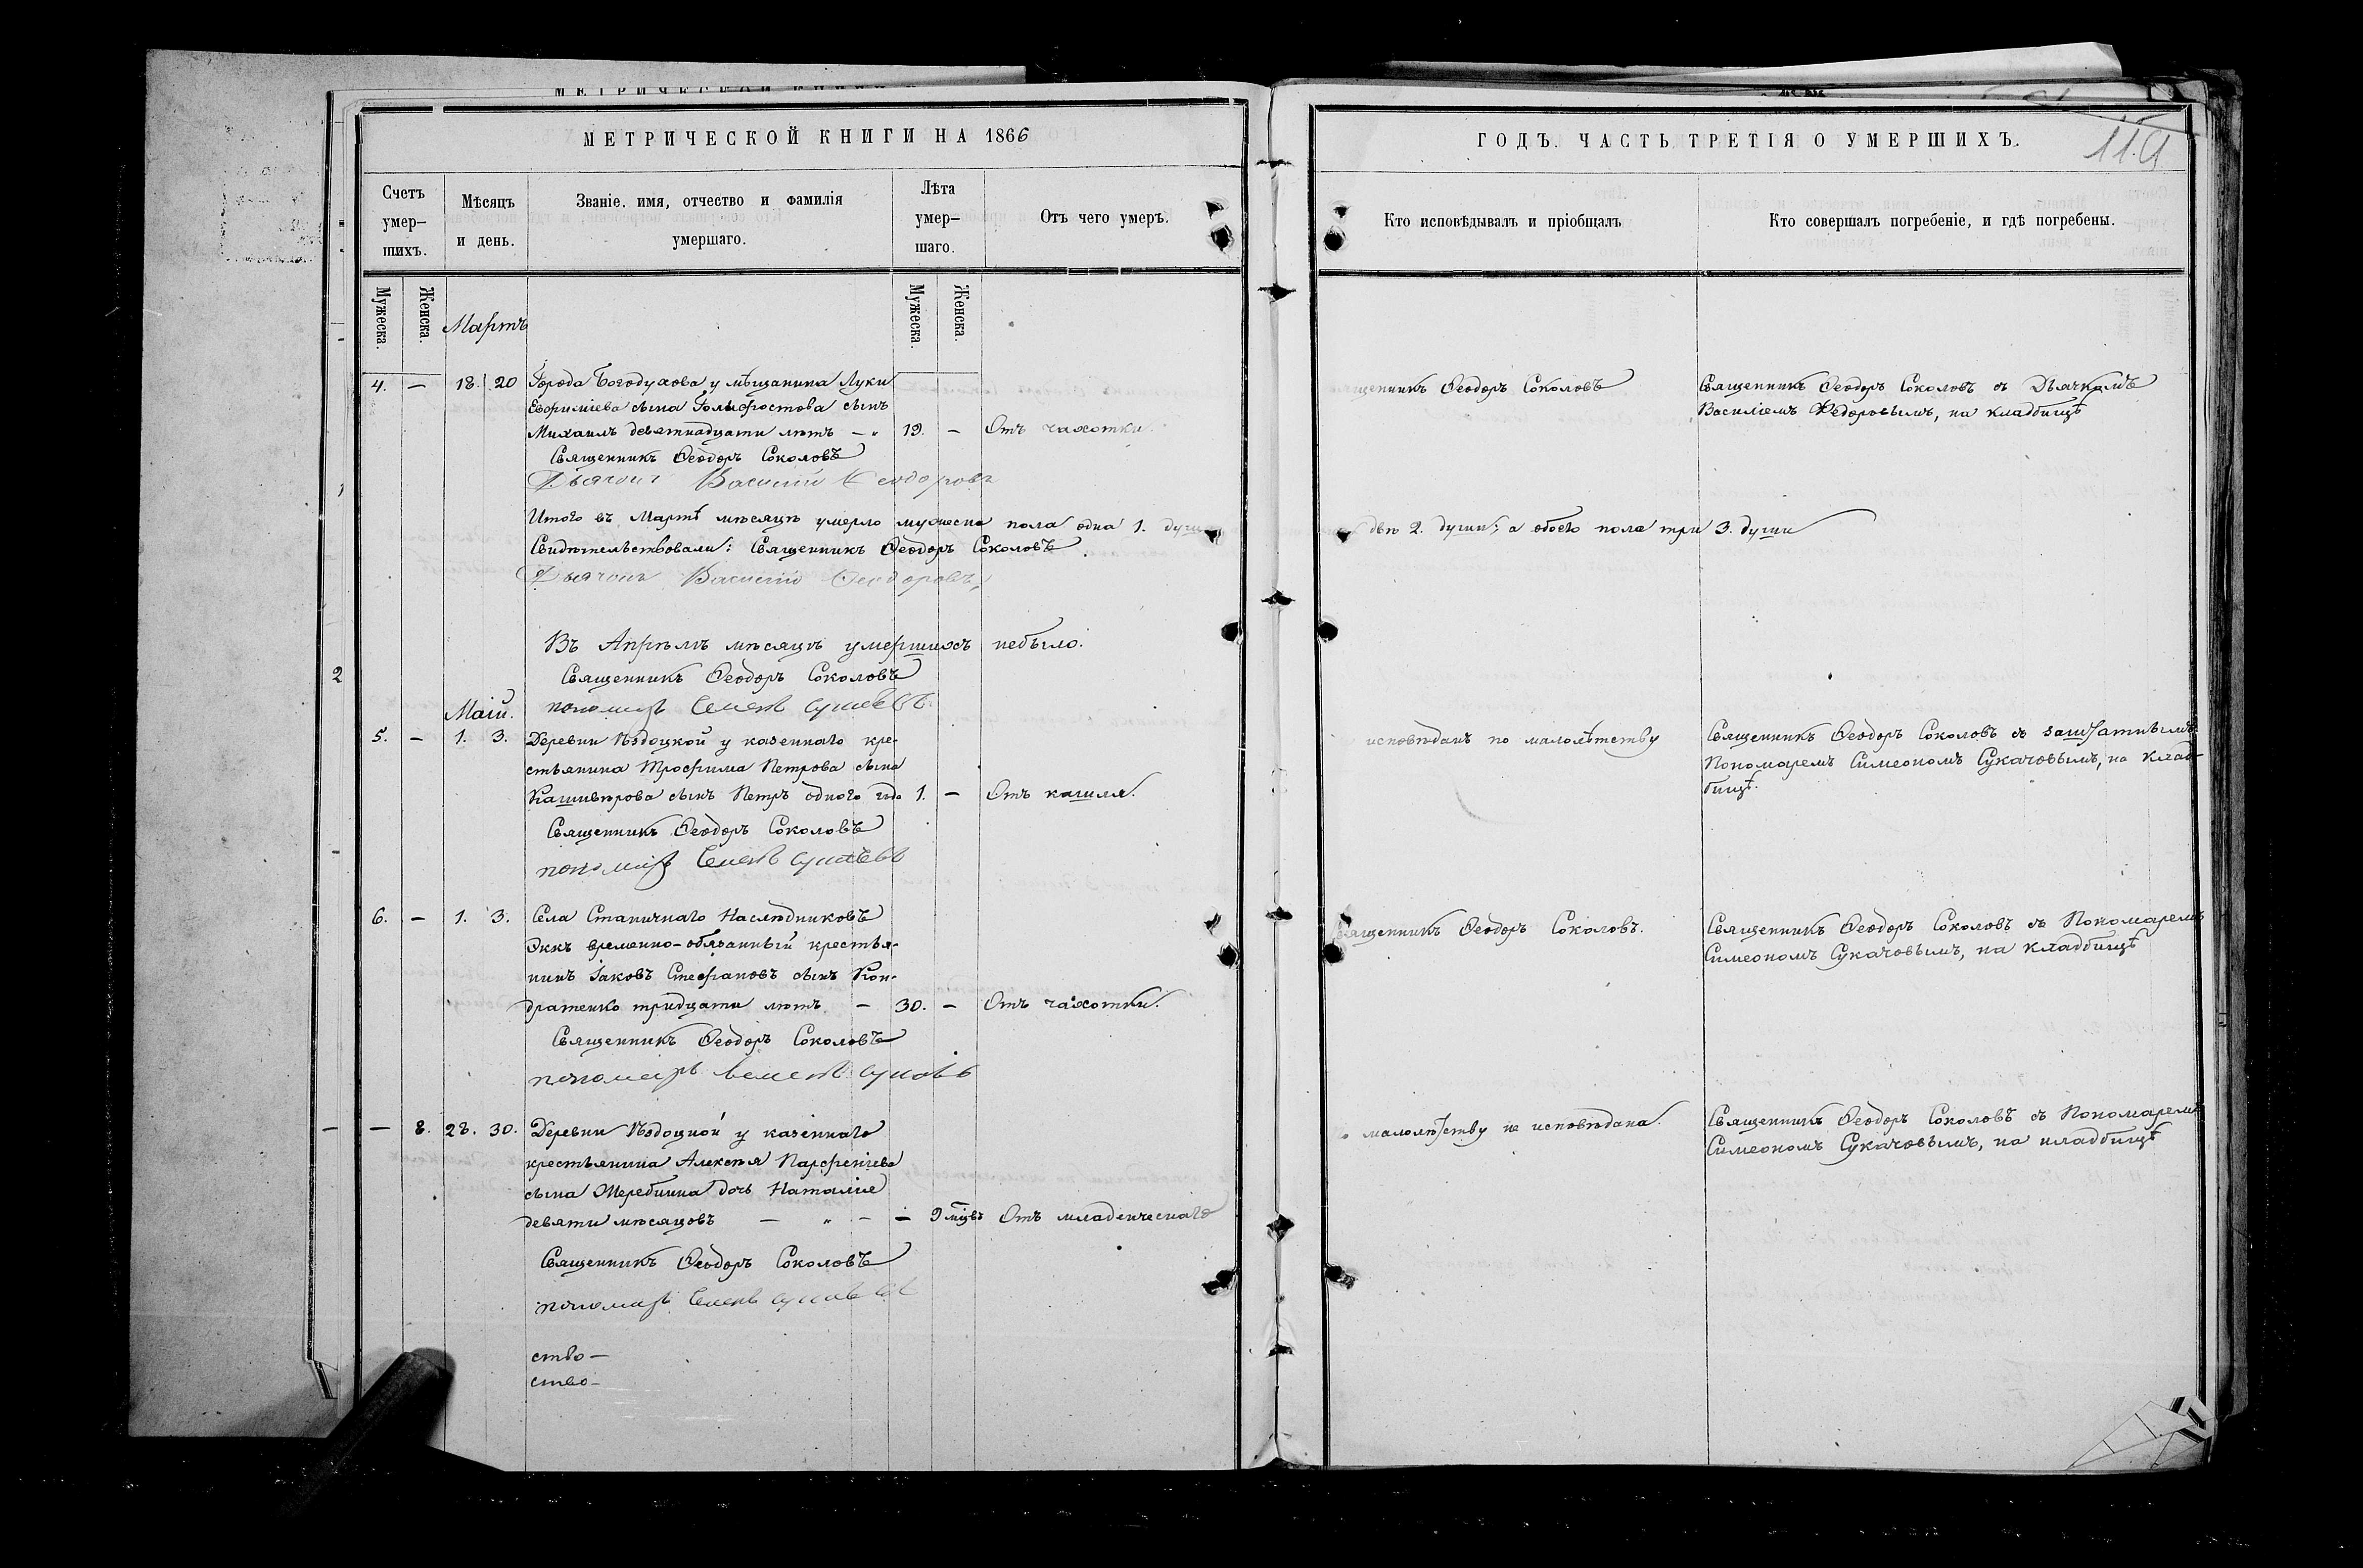 МЕТРИЧЕСКОЙ КНИГИ НА 1866
Счетъ умер–шихъ.
Мѣсяцъ и день.
Званіе, имя, отчество и фамилія умершаго.
Лѣта умер–шаго.
Отъ чего умеръ.
Мужеска.
Женска.
Мартъ
Мужеска.
Женска.
4. — 18. 20 Города Богодухова у мѣщанина Луки
Евфиміева сына Гольфостова сынъ
Михаилъ девятнадцати лѣтъ — „ 19. — Отъ чахотки.
Священникъ Ѳеодоръ Соколовъ
Дьячокъ Василій Ѳеодоровъ
Итого въ Мартѣ мѣсяцѣ умерло мужеска пола одна 1. душа
Свидѣтельствовали: Священникъ Ѳеодоръ Соколовъ
Дьячокъ Василій Ѳеодоровъ
Въ Апрѣлѣ мѣсяцѣ умершихъ небыло.
Священникъ Ѳеодоръ Соколовъ
пономарь Семенъ
Маій.
5. — 1. 3. Деревни у казеннаго кре-
стьянина Трофима Петрова сына
сынъ Петръ одного года 1. — Отъ кашля.
Священникъ Ѳеодоръ Соколовъ
пономарь Семенъ
6. — 1. 3. Села Станичнаго Наслѣдниковъ
временно-обязанный крестья-
нинъ Іаковъ Стефановъ сынъ Кон-
дратенко тридцати лѣтъ — 30. — Отъ чахотки.
Священникъ Ѳеодоръ Соколовъ
пономарь Семенъ
— 8. 28. 30. Деревни у казеннаго
крестьянина Алексѣя Парфеніева
сына Жеребкина дочь Наталіе
девяти мѣсяцовъ — „ — — 9 мцвъ Отъ младенческаго
Священникъ Ѳеодоръ Соколовъ
пономарь Семенъ
ство —
ство —
ГОДЪ. ЧАСТЬ ТРЕТІЯ О УМЕРШИХЪ.
Кто исповѣдывалъ и пріобщалъ
Кто совершалъ погребеніе, и гдѣ погребены.
Священникъ Ѳеодоръ Соколовъ
Священникъ Ѳеодоръ Соколовъ съ Дьячкомъ
Василіемъ Ѳедоровымъ, на кладбищѣ
двѣ 2. души; а обоего пола три 3. души
исповѣданъ по малолѣтству
Священникъ Ѳеодоръ Соколовъ съ заштатнымъ
Пономаремъ Симеономъ Сукачовымъ, на клад-
бищѣ.
Священникъ Ѳеодоръ Соколовъ.
Священникъ Ѳеодоръ Соколовъ съ Пономаремъ
Симеономъ Сукачовымъ, на кладбищѣ
малолѣтству не исповѣдана.
Священникъ Ѳеодоръ Соколовъ съ Пономаремъ
Симеономъ Сукачовымъ, на кладбищѣ